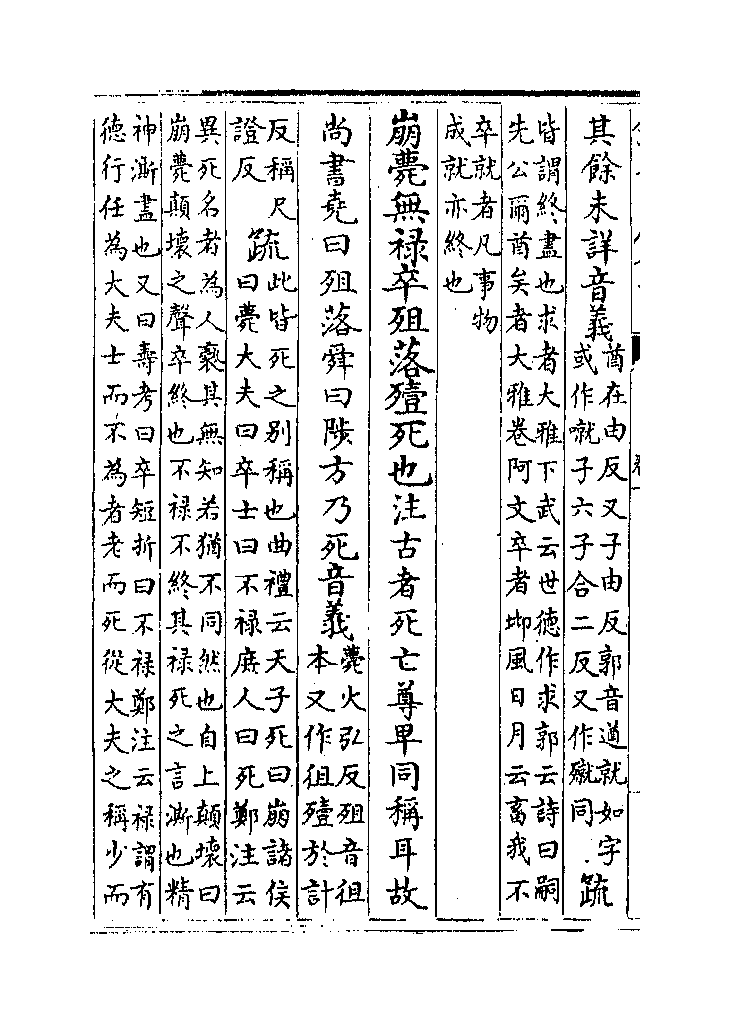 其餘未詳音義
酋在由反又子由反郭音遒就如字
或作噈子六子合二反又作殧同
疏
皆謂終盡也求者大雅下武云世德作求郭云詩曰嗣
先公爾酋矣者大雅卷阿文卒者邶風日月云畜我不
卒就者凡事物
成就亦終也
崩薨無禄卒殂落殪死也注古者死亡尊卑同稱耳故
尚書堯曰殂落舜曰陟方乃死音義
薨火弘反殂音徂
本又作徂殪於計
反稱尺
證反
疏
此皆死之别稱也曲禮云天子死曰崩諸侯
曰薨大夫曰卒士曰不禄庶人曰死鄭注云
異死名者為人褻其無知若猶不同然也自上顛壞曰
崩薨顛壞之聲卒終也不禄不終其禄死之言澌也精
神澌盡也又曰壽考曰卒短折曰不禄鄭注云禄謂有
德行任為大夫士而不為者老而死從大夫之稱少而